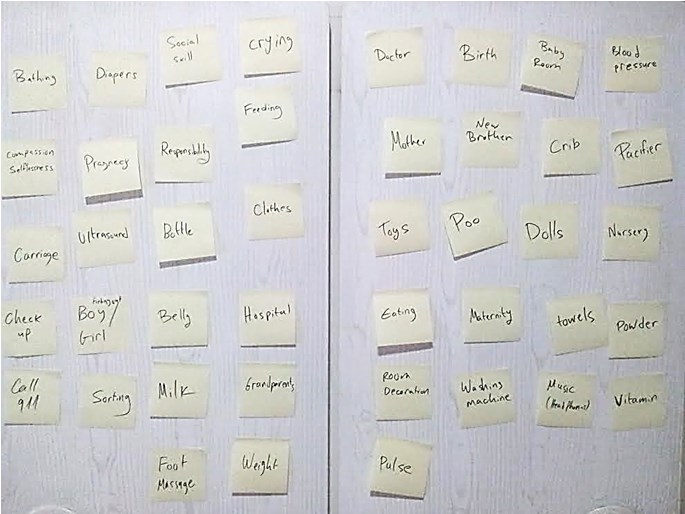 Bathing
Diapers
Social
skill
Crying
Feeding
Compassion
Selflessness
Pragnecy
Responsibility
Clothes
Carriage
Ultrasound
Bottle
Check
up
Boy/
Girl
Belly
Hospital
Call
911
Sorting
Milk
Grandparents
Foot
Massage
Weight
Doctor
Birth
Baby
Room
Blood
pressure
Mother
New
Brother
Crib
Pacifier
Toys
Poo
Dolls
Nursery
Eating
Maternity
towels
Powder
Room
Decoration
Washing
machine
Music
(Headphones)
Vitamin
Pulse